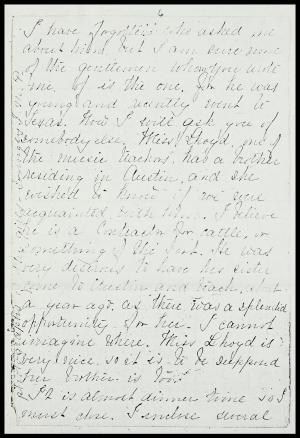 6
I have forgotten who asked me
about him, but I am sure none
of the gentlemen whom you wrote
me of is the one, for he was
young and recently went to
Texas. Now I will ask you of
somebody else. Miss Lloyd, one of
the music teachers, has a brother
residing in Austin, and she
wished to know if we were
acquainted with him. I believe
he is a Contractor for cattle, or
something of the sort. He was
very desirous to have his sister
come to Austin and teach, about
a year ago, as there was a splendid
opportunity for her. I cannot
imagine where. Miss Lloyd is
very nice, so it is to be supposed
her brother is too.
It is almost dinner time so I
must close. I enclose several